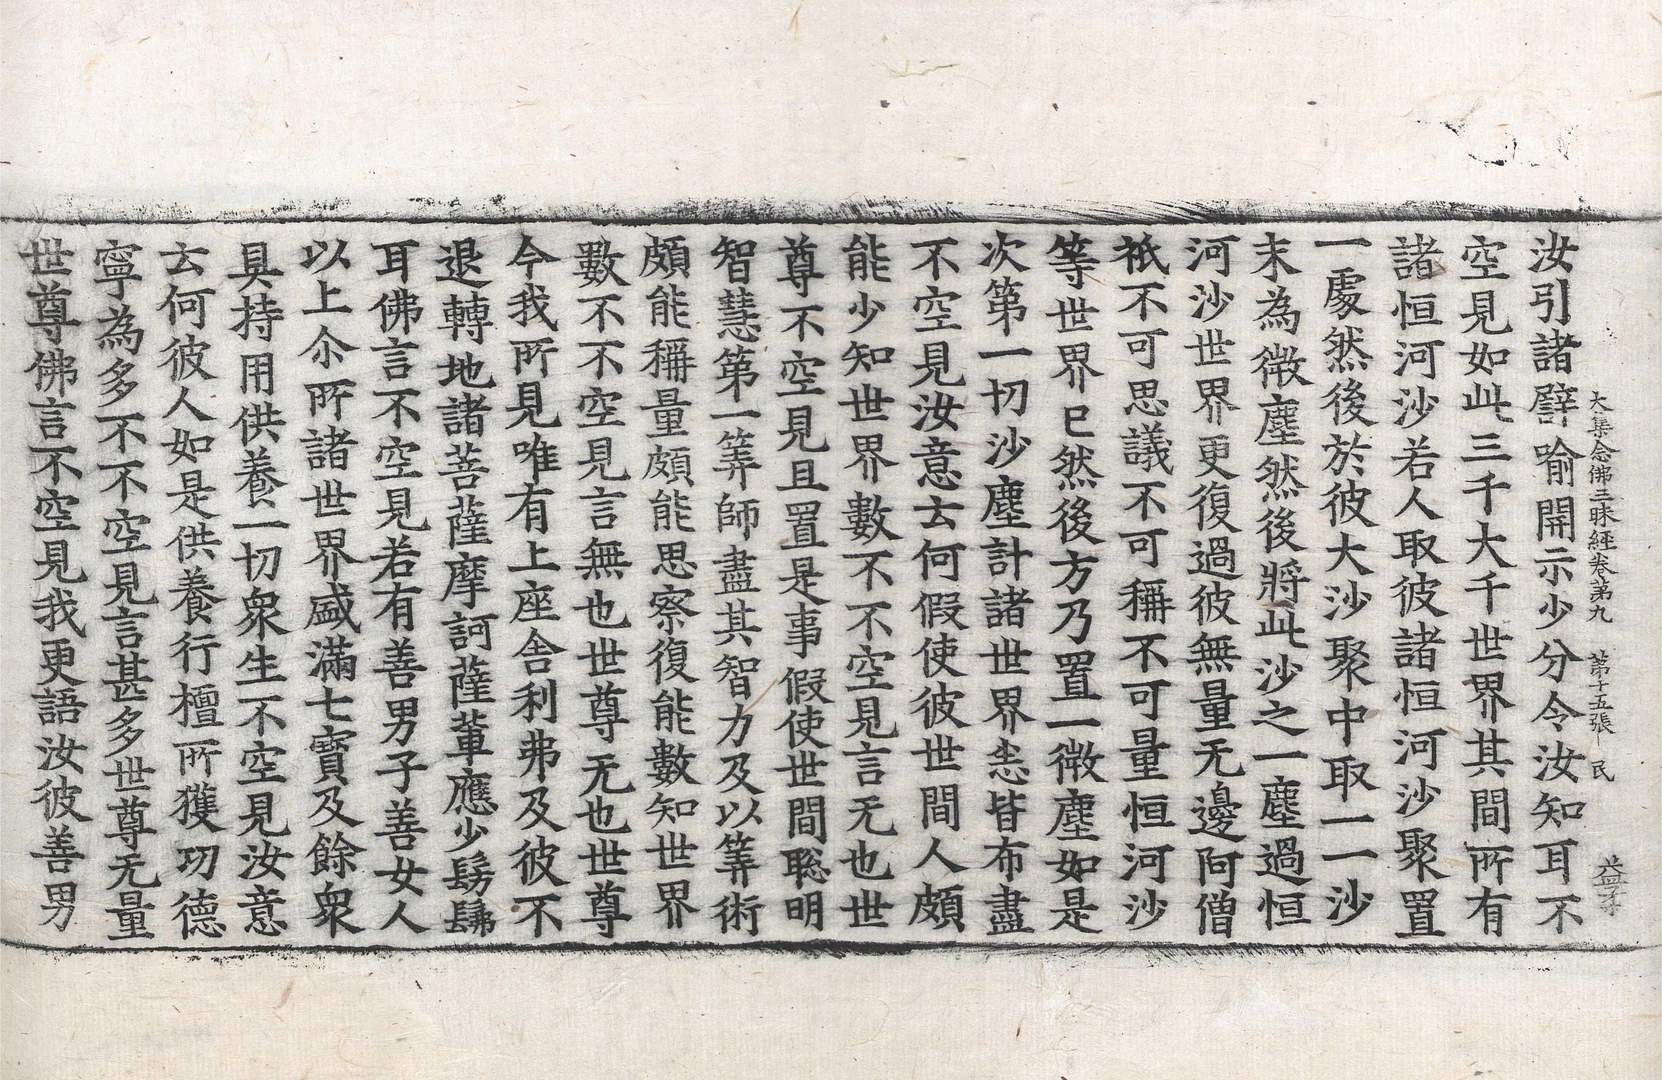 大集念佛三昧經卷第九 第十五張 民 益子
汝引諸譬喻開示少分令汝知耳不
空見如此三千大千世界其間所有
諸恒河沙若人取彼諸恒河沙聚置
一處然後於彼大沙聚中取一一沙
末為微塵然後將此沙之一塵過恒
河沙世界更復過彼無量无邊阿僧
祇不可思議不可稱不可量恒河沙
等世界已然後方乃置一微塵如是
次第一切沙塵計諸世界悉皆布盡
不空見汝意云何假使彼世間人頗
能少知世界數不不空見言无也世
尊不空見且置是事假使世間聡明
智慧第一筭師盡其智力及以筭術
頗能稱量頗能思察復能數知世界
數不不空見言無也世尊无也世尊
今我所見唯有上座舍利弗及彼不
退轉地諸菩薩摩訶薩輩應少髣髴
耳佛言不空見若有善男子善女人
以上尒所諸世界盛滿七寶及餘衆
具持用供養一切衆生不空見汝意
云何彼人如是供養行檀所獲功德
寧為多不不空見言甚多世尊无量
世尊佛言不空見我更語汝彼善男